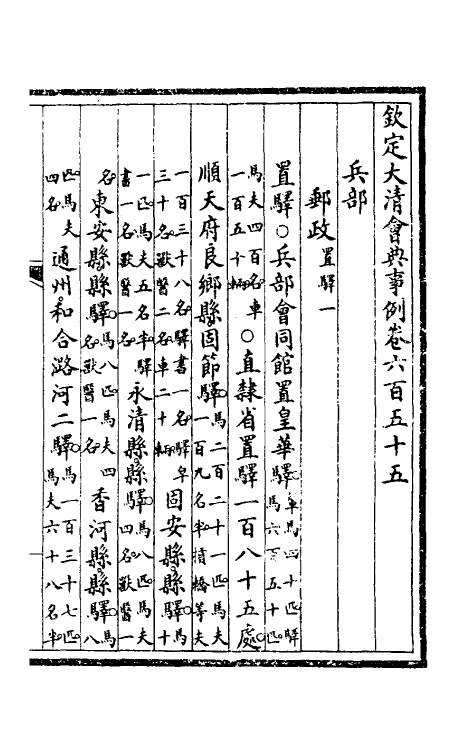 欽定大清會典事例卷六百五十五
兵部
郵政置驛一
置驛○兵部會同館置皇華驛車馬四十匹驛馬六百五十匹
馬夫四百名車一百五十輛○直隸省置驛一百八十五處
順天府良鄉縣固節驛馬二百二十一匹馬夫一百九名半摃轎等夫
一百三十八名驛書一名驛皁三十名獸醫二名車二十輛固安縣縣驛馬十
一匹馬夫五名半驛書一名獸醫一名永清縣縣驛馬八匹馬夫四名獸醫一
名東安縣縣驛馬八匹馬夫四名獸醫一名香河縣縣驛馬八
匹馬夫四名通州和合潞河二驛馬一百三十七匹馬夫六十八名半